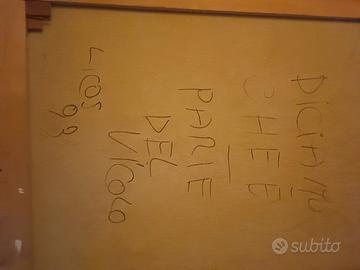 DICIAMO
CHE È
PARTE
DEL
VICOLO
LICOS
99
subito